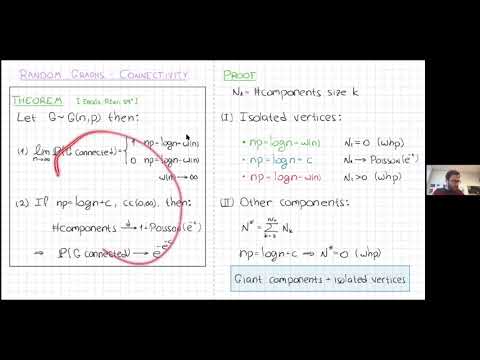 RANDOM GRAPHS - CONNECTIVITY
THEOREM
Let G~G(n,p) then:
(1) lim n→∞ P(G connected) = { 1 np-logn-ω(n)
0 np-logn-ω(n)
ω(n) → ∞
(2) If np=logn+c, then:
#components → 1+Poisson(e⁻ᶜ)
⇒ P(G connected) → e^-e^-c
PROOF
Nk = #components size k
(I) Isolated vertices:
• np=logn-ω(n) N₁=0 (whp)
• np=logn-c N₁→Poisson(e⁻ᶜ)
• np=logn-ω(n) N₁>0 (whp)
(II) Other components:
N* = Σ Nk
np=logn-c ⇒ N*=0 (whp)
Giant components + isolated vertices